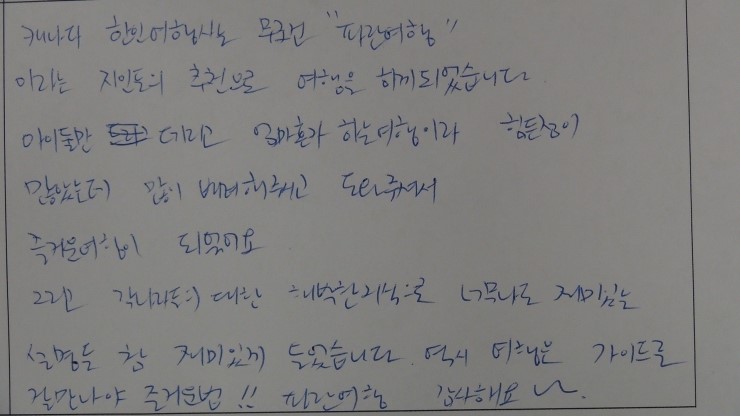 캐나다 한인여행사는 무조건 "파란여행"
이라는 지인들의 추천으로 여행을 하게되었습니다
아이둘만 데리고 엄마혼자 하는여행이라 힘든점이
많았는데 많이 배려해주시고 도와주셔서
즐거운여행이 되었어요
그리고 대한 해박한지식으로 너무나도 재미있는
설명들 참 재미있게 들었습니다. 역시 여행은 가이드를
잘만나야 즐거운법!! 파란여행 감사해요~~